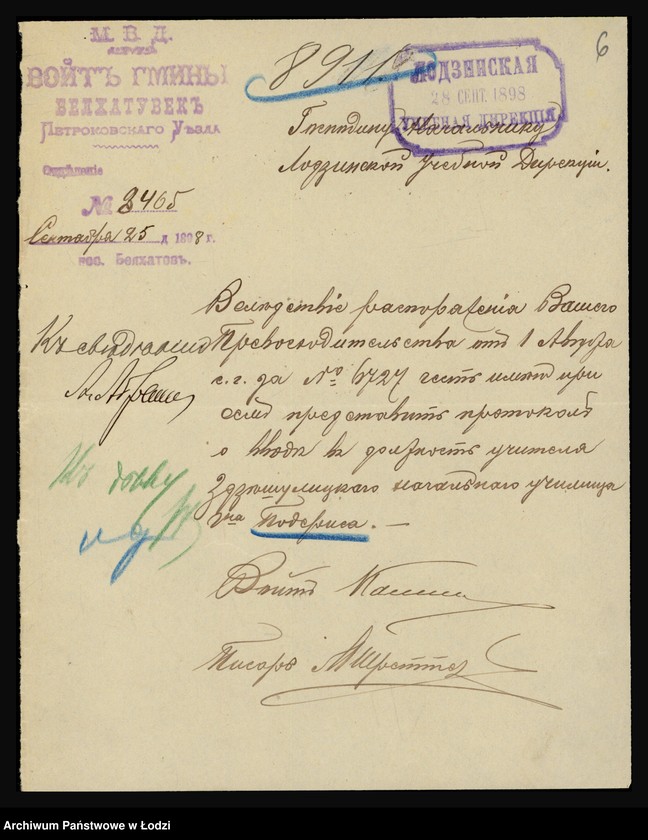 М. В. Д.
ВОЙТЪ ГМИНЫ
БЕЛХАТУВЕКЪ
Петроковскаго Уѣзда
Отдѣленіе
№ 3465
Сентября 25 д 1898 г.
пос. Белхатовъ.
6
ЛОДЗИНСКАЯ
28 СЕНТ. 1898
УЧЕБНАЯ ДИРЕКЦІЯ
Господину Начальнику
Лодзинской Учебной Дирекціи.
Вслѣдствіе распоряженія Вашего
Превосходительства отъ 1 Августа
с. г. за № 6727 честь имѣю при
семъ представить протоколъ
о вводѣ въ должность учителя
Здзѣшулицкаго начальнаго училища
г-на Подсряса. —
Къ свѣдѣнію
Къ дѣлу
Войтъ
Писарь
Archiwum Państwowe w Łodzi